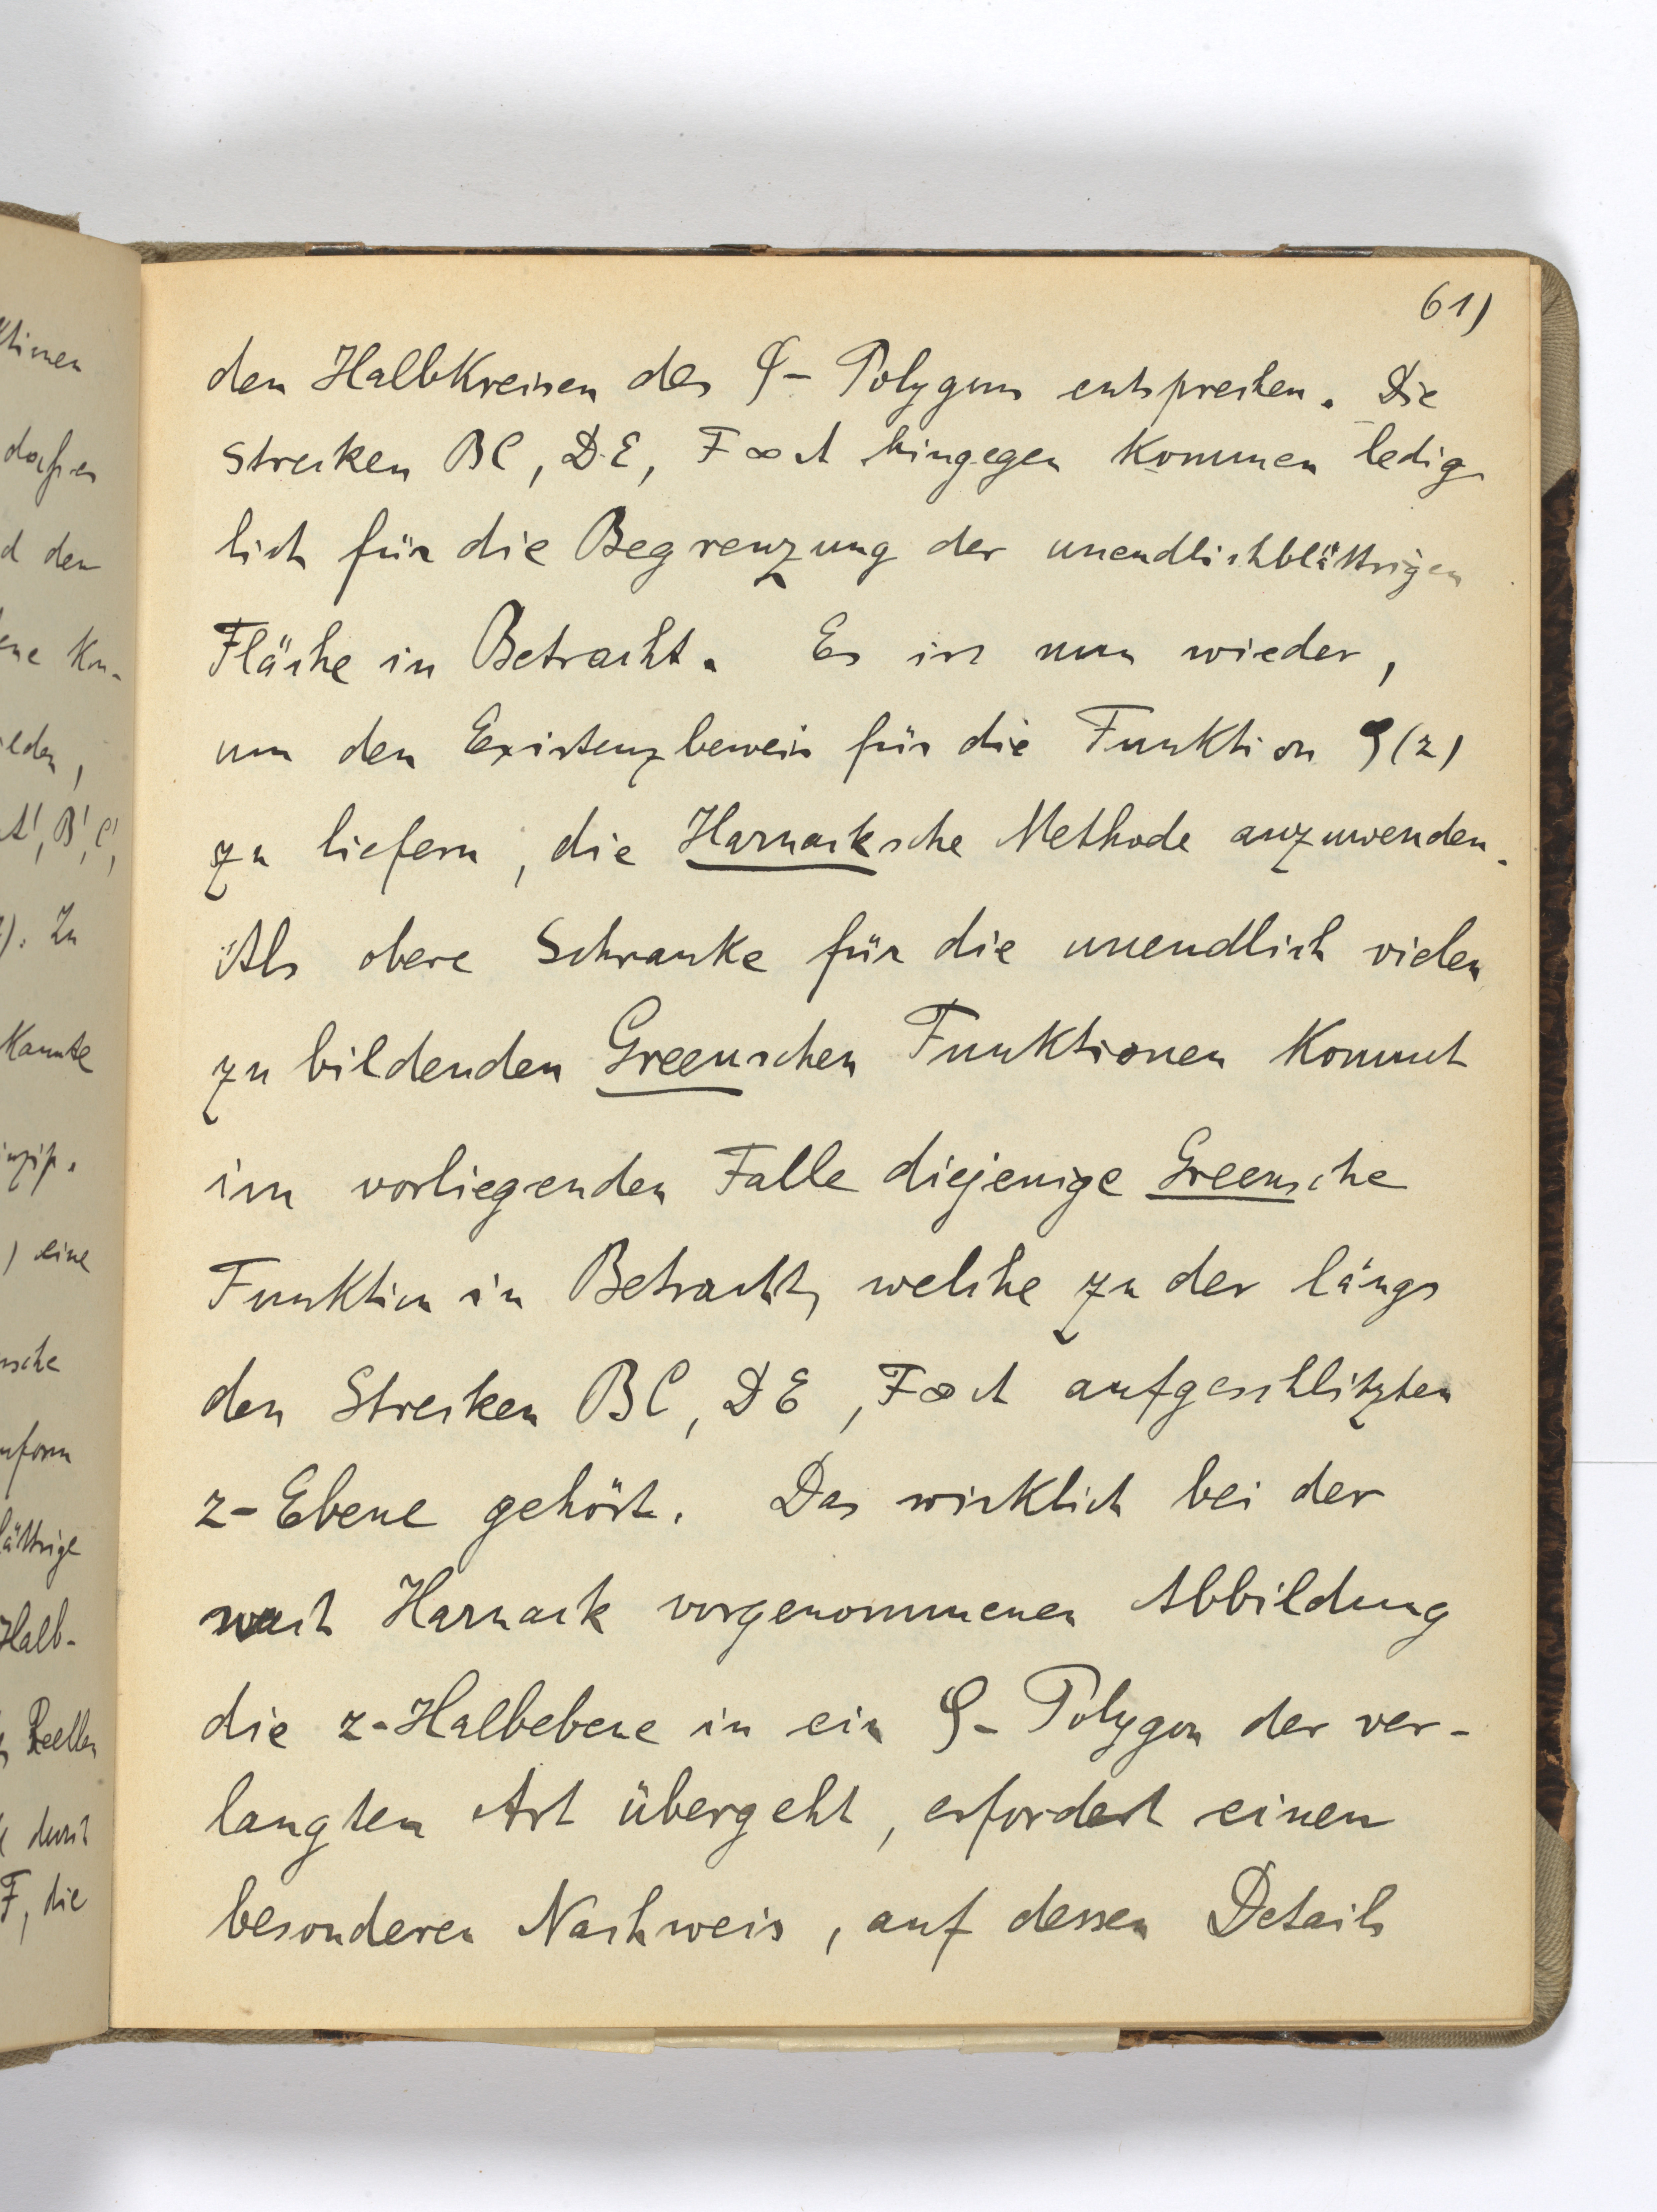 61)
den Halbkreisen des ζ- Polygons entsprechen. Die
Strecken BC, DE, F∞A hingegen kommen ledig
lich für die Begrenzung der unendlichblättrigen
Fläche in Betracht. Es ist nun wieder,
um den Existenzbeweis für die Funktion ζ(z)
zu liefern, die Harnacksche Methode anzuwenden.
Als obere Schranke für die unendlich vielen
zu bildenden Greenschen Funktionen kommt
im vorliegenden Falle diejenige Greensche
Funktion in Betracht, welche zu der längs
den Strecken BC, DE, F∞A aufgeschlitzten
z-Ebene gehört. Das wirklich bei der
nach Harnack vorgenommenen Abbildung
die z-Halbebene in ein ζ- Polygon der ver-
langten Art übergeht, erfordert einen
besonderen Nachweis, auf dessen Details